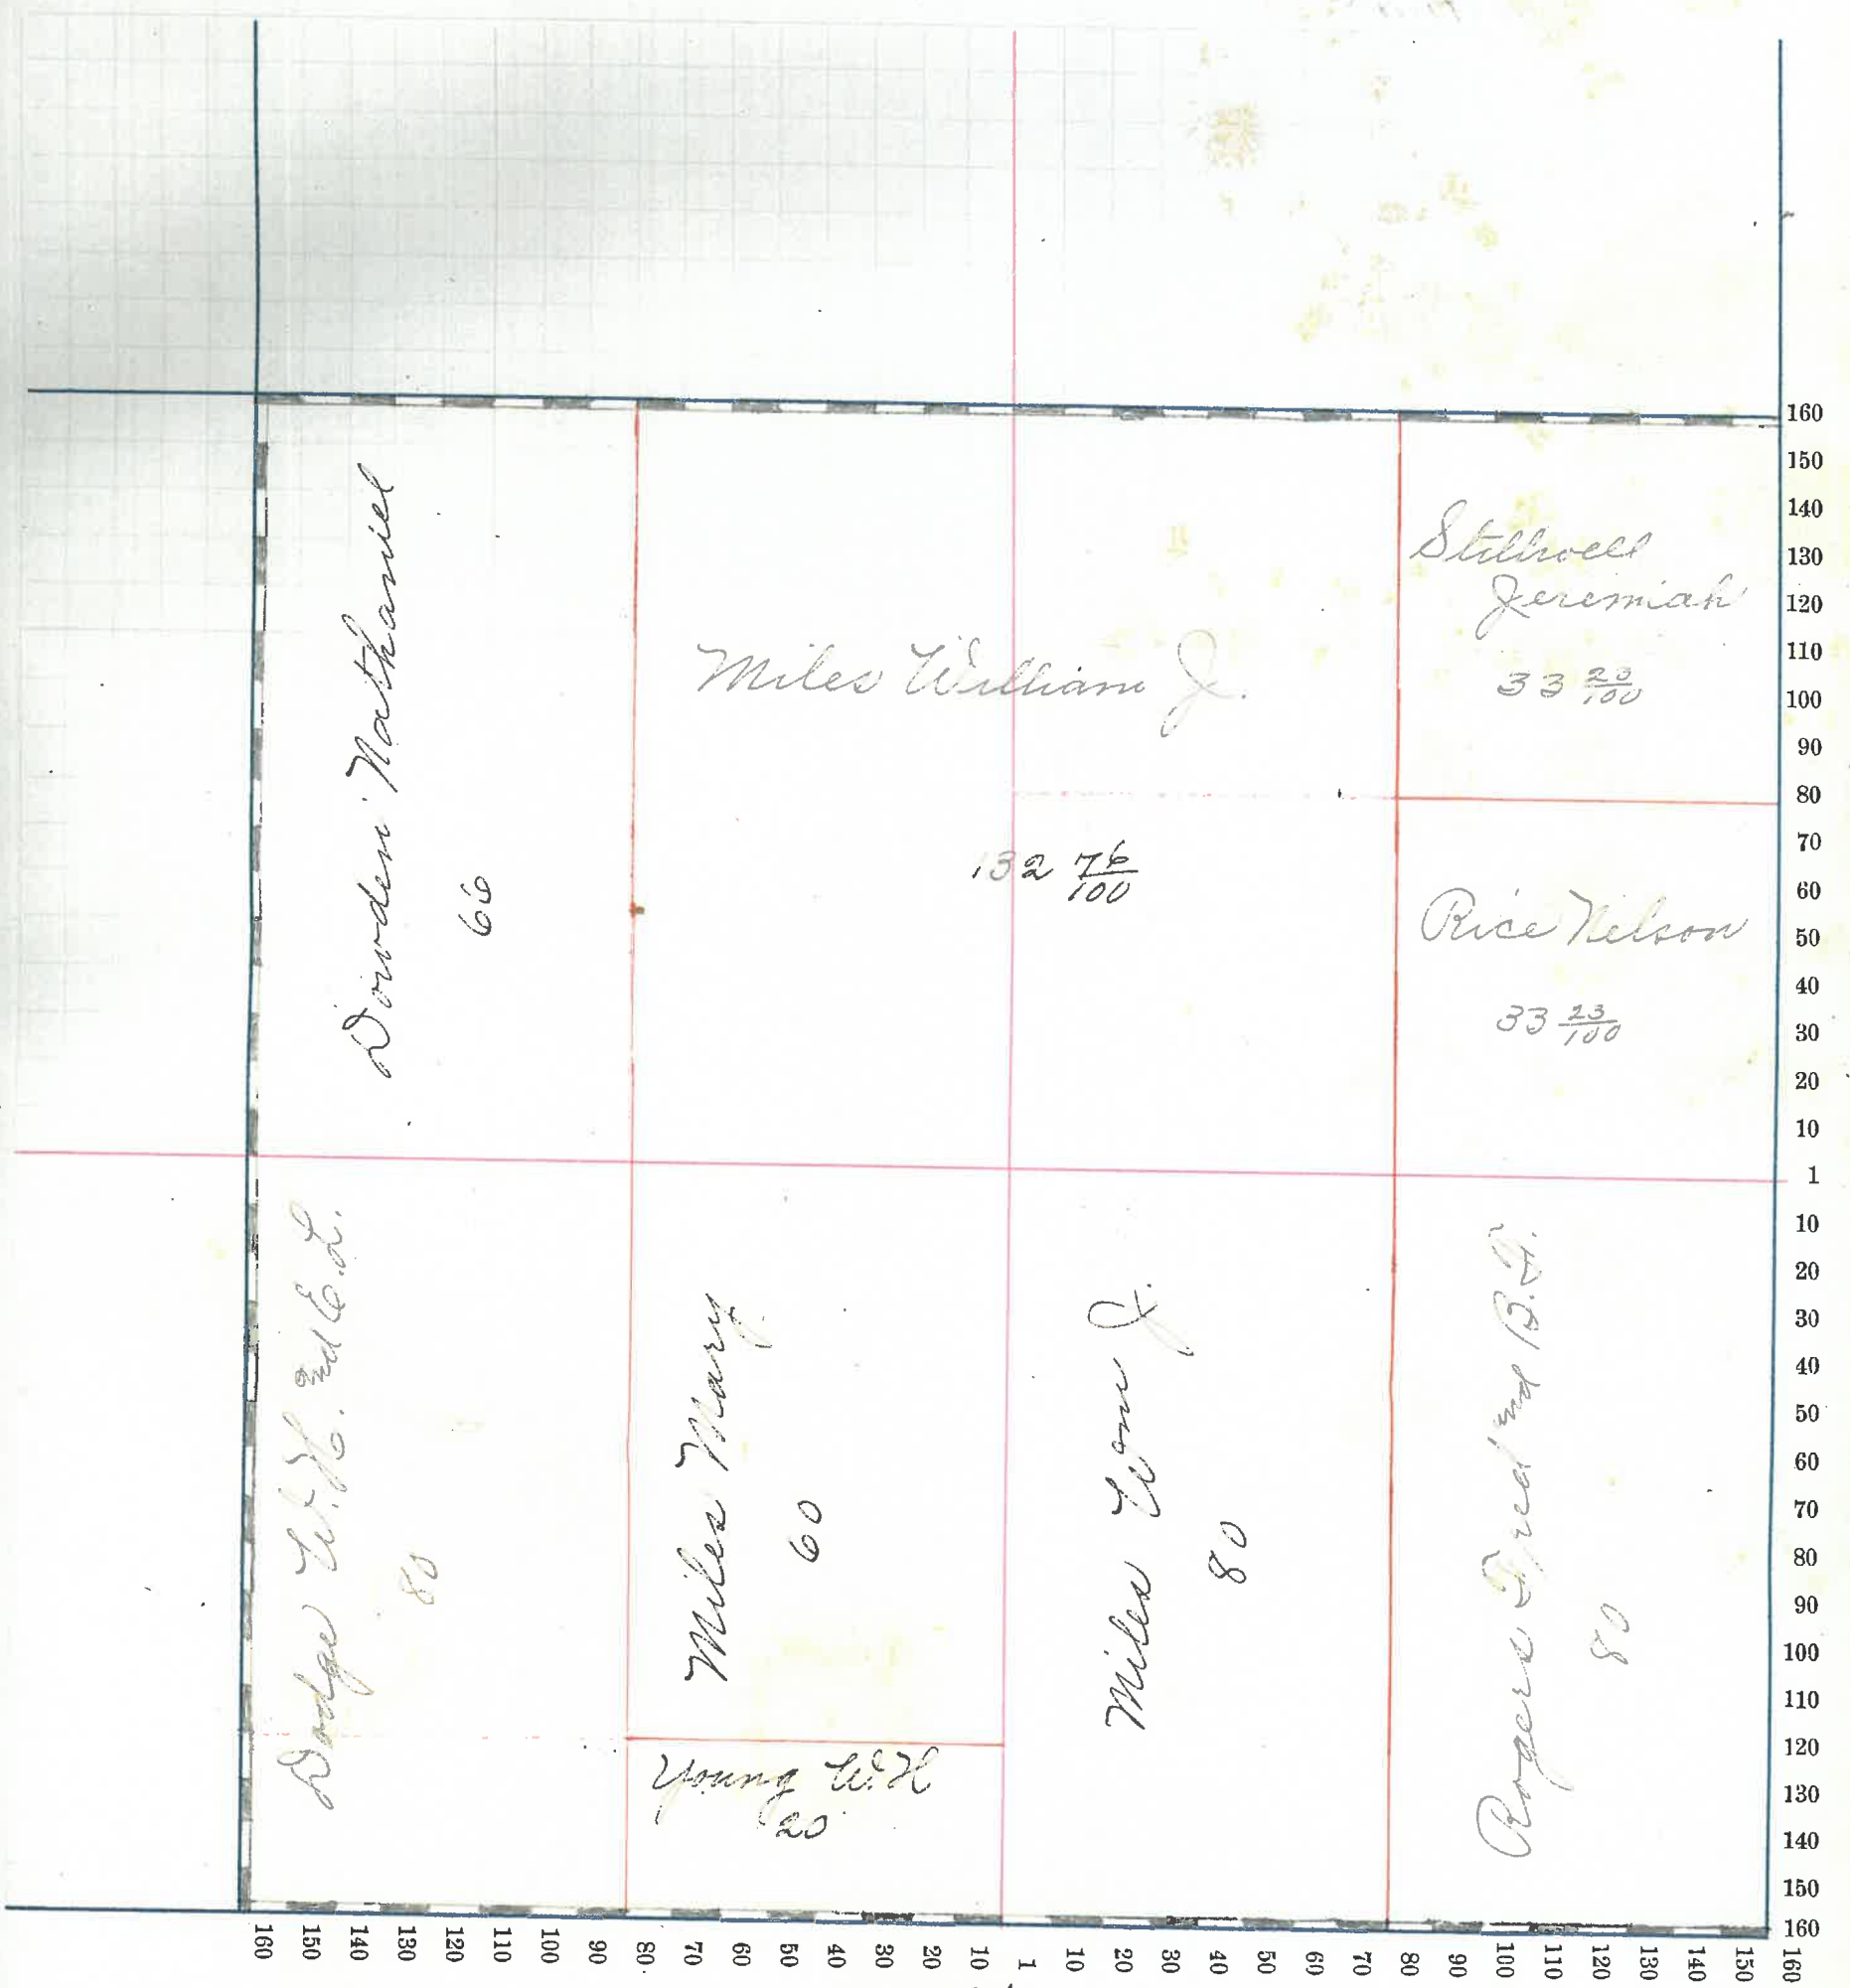 Dowden Nathaniel
66
Miles William J.
132 76/100
Stillwell
Jeremiah
33 23/100
Rice Nelson
33 23/100
Dodge W.H. and E.L.
80
Miles Mary
60
Young W.H
20
Miles Wm J.
80
Rogers Fred and B.F.
80
160
150
140
130
120
110
100
90
80
70
60
50
40
30
20
10
1
10
20
30
40
50
60
70
80
90
100
110
120
130
140
150
160
160 150 140 130 120 110 100 90 80 70 60 50 40 30 20 10 1 10 20 30 40 50 60 70 80 90 100 110 120 130 140 150 160